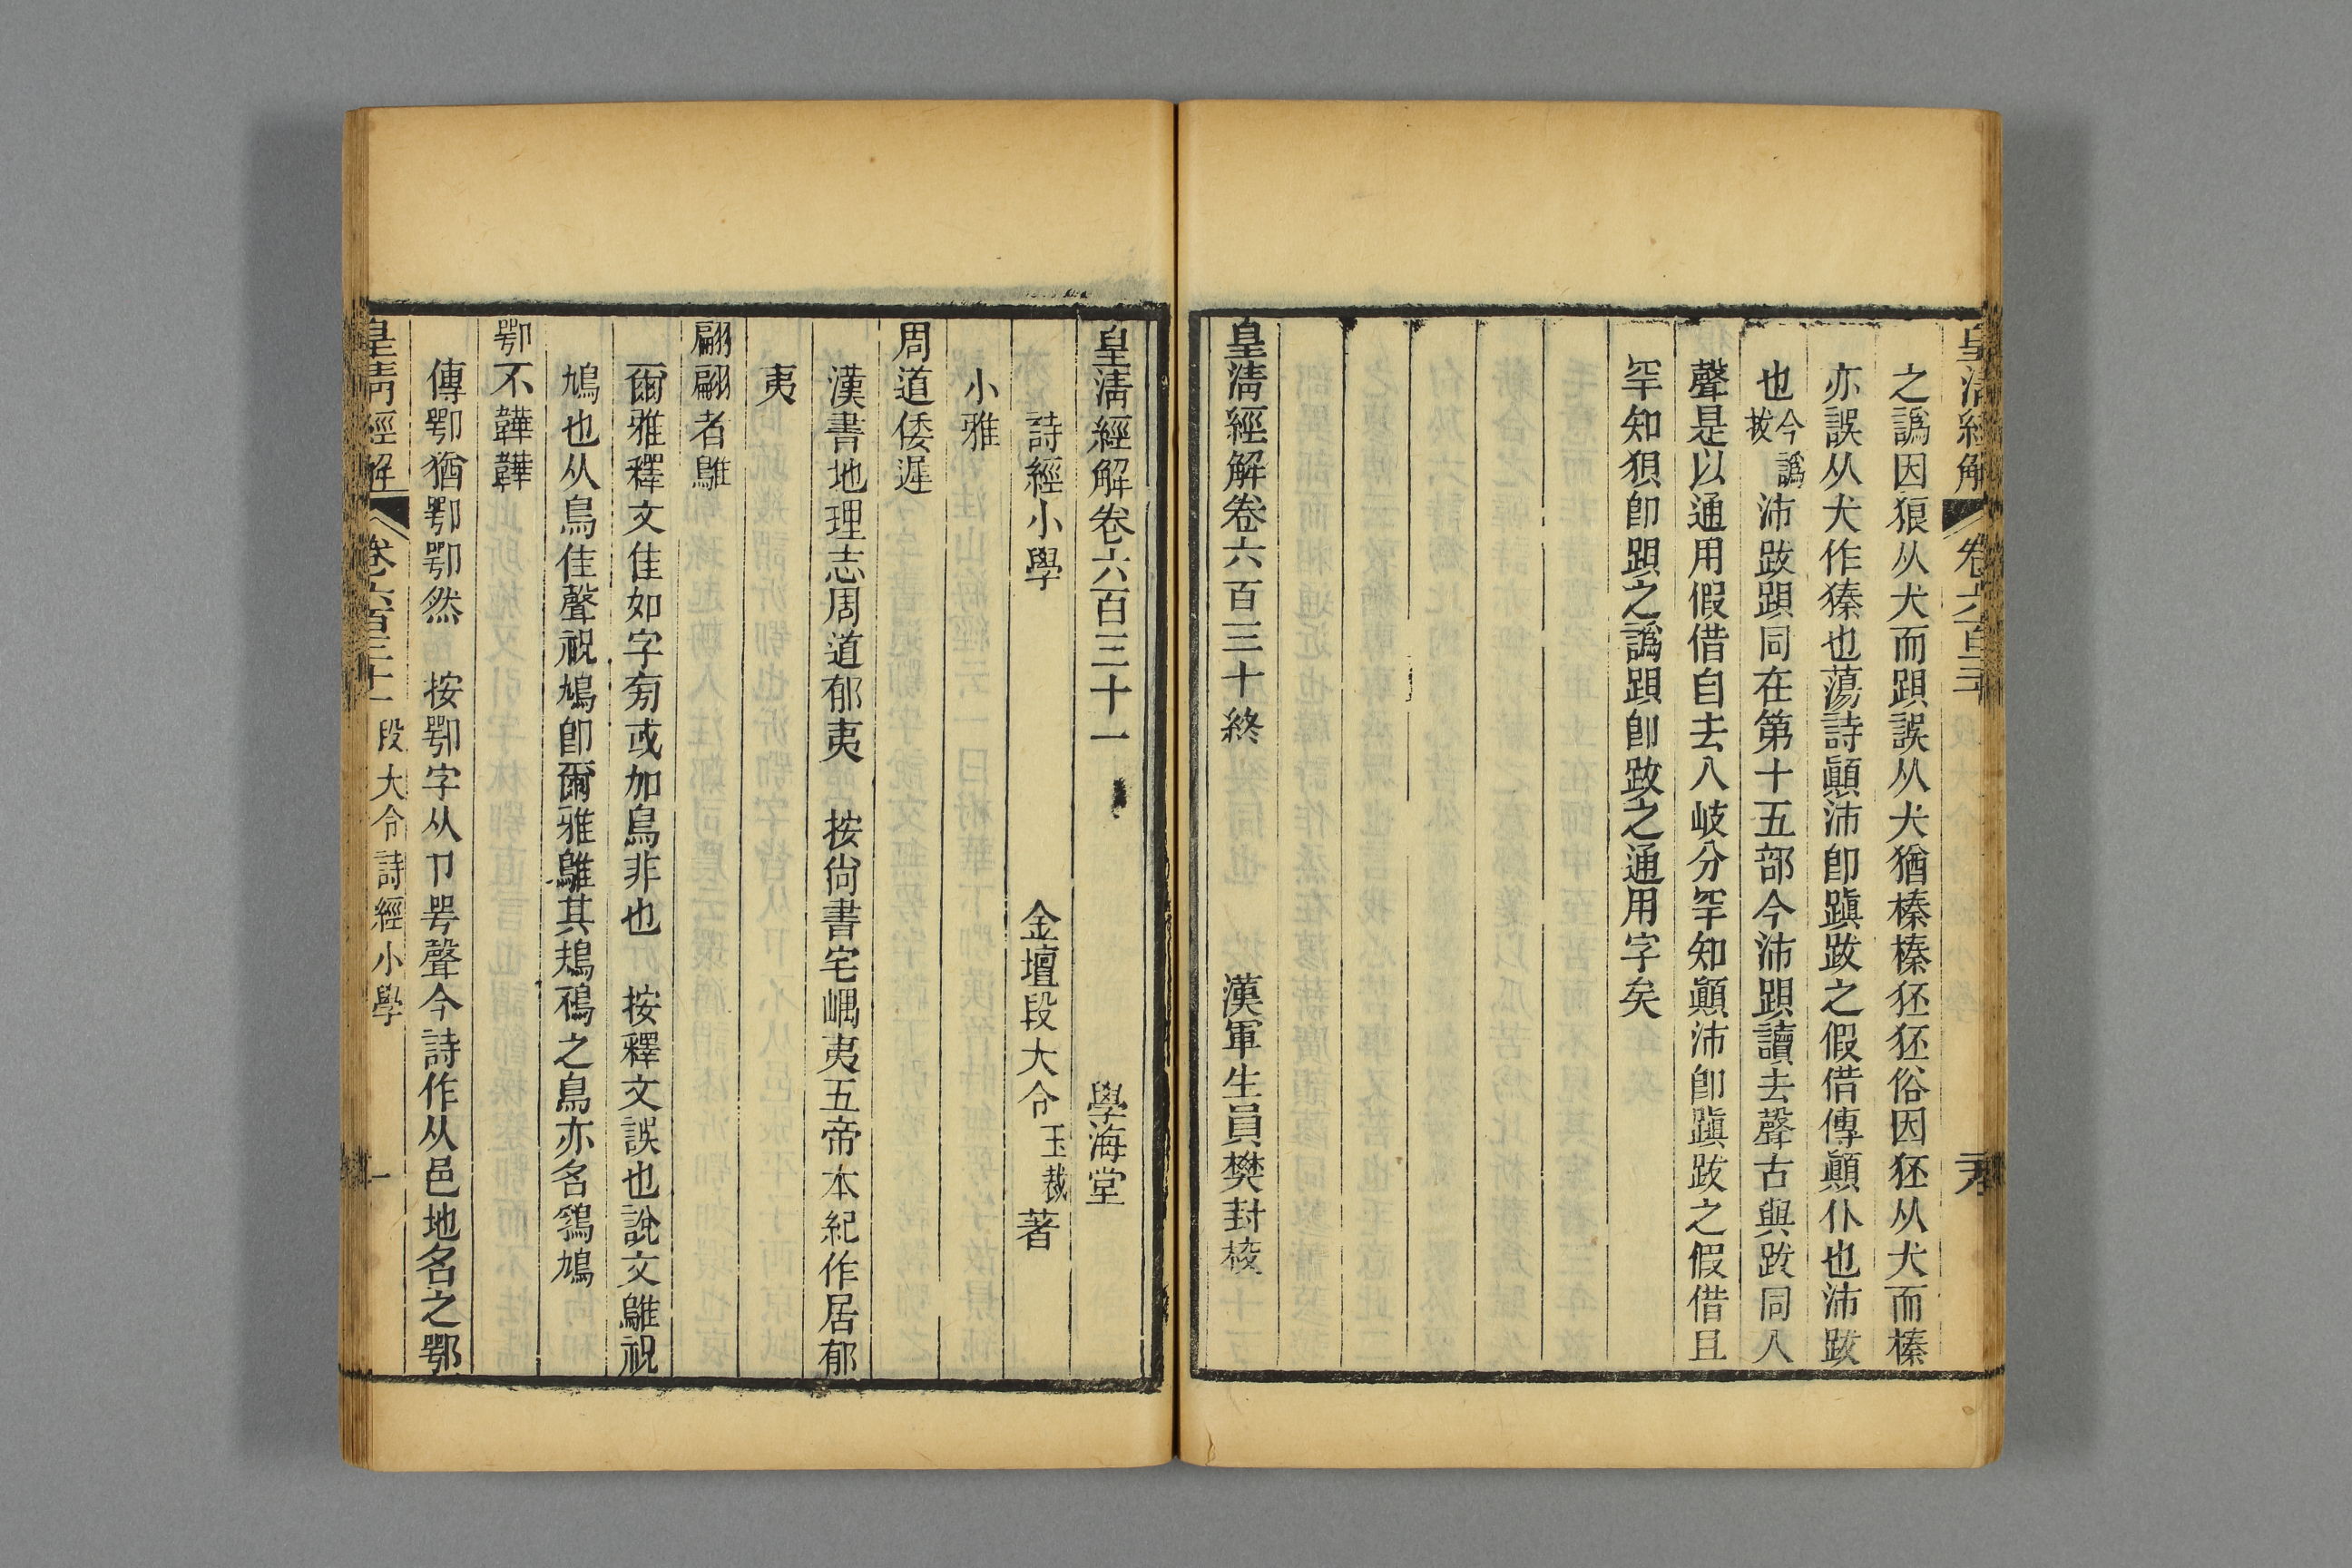 皇清經解
卷六百三十
之譌因狼从犬而䟺誤从犬猶榛榛狉狉俗因狉从犬而榛
亦誤从犬作獉也蕩詩顚沛卽蹎跋之假借傳顚仆也沛跋
也今譌拔沛跋䟺同在第十五部今沛䟺讀去聲古與跋同入
聲是以通用假借自去入岐分罕知顚沛卽蹎跋之假借且
罕知狽卽䟺之譌䟺卽跋之通用字矣
皇清經解卷六百三十終
漢軍生員樊封校
皇清經解卷六百三十一
學海堂
詩經小學
金壇段大令玉裁著
小雅
周道倭遲
漢書地理志周道郁夷　按尙書宅嵎夷五帝本紀作居郁
夷
翩翩者鵻
爾雅釋文隹如字旁或加鳥非也　按釋文誤也說文鵻祝
鳩也从鳥隹聲祝鳩卽爾雅鵻其鳺鴀之鳥亦名鶵鳩
鄂不韡韡
傳卾猶卾卾然　按卾字从卩咢聲今詩作从邑地名之鄂
皇清經解
卷六百三十一
段大令詩經小學
一